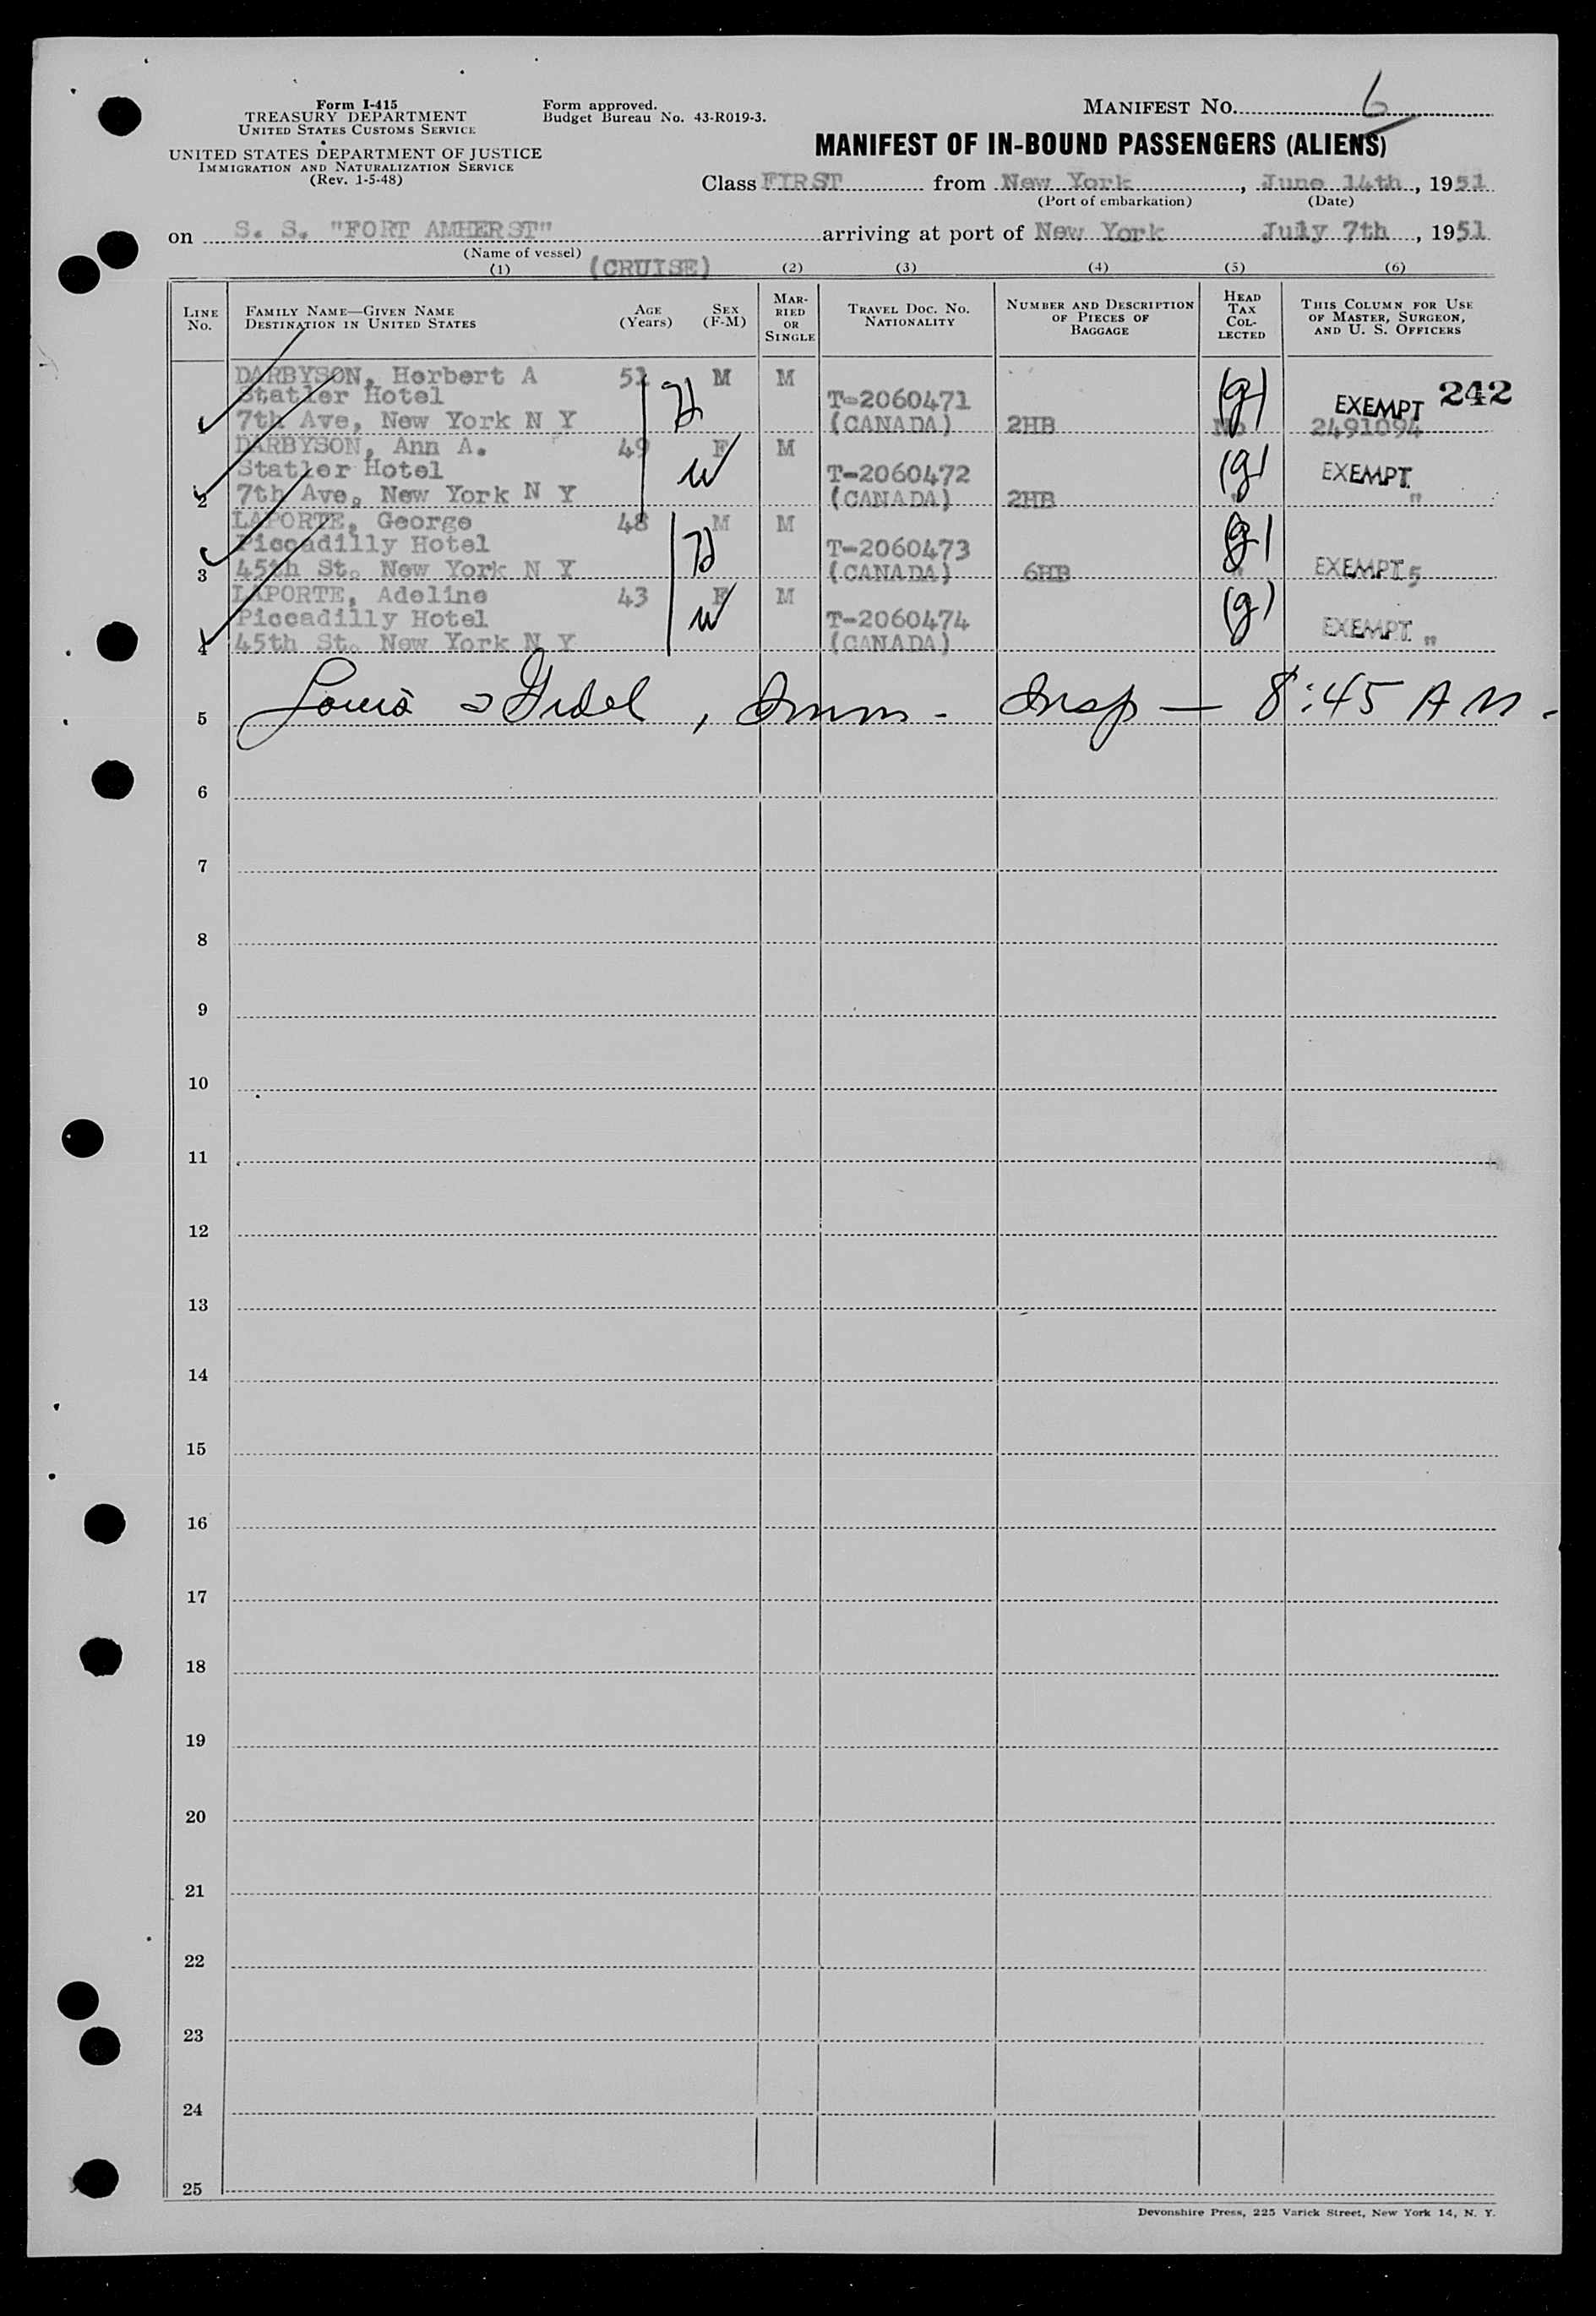 Form I-415
TREASURY DEPARTMENT
UNITED STATES CUSTOMS SERVICE
UNITED STATES DEPARTMENT OF JUSTICE
IMMIGRATION AND NATURALIZATION SERVICE
(Rev. 1-5-48)
Form approved.
Budget Bureau No. 43-R019-3.
MANIFEST NO. 6
MANIFEST OF IN-BOUND PASSENGERS (ALIENS)
Class FIRST from New York, June 14th, 1951
(Port of embarkation) (Date)
on S. S. "FORT AMHERST" arriving at port of New York July 7th, 1951
(Name of vessel)
(CRUISE)
(1) (2) (3) (4) (5) (6)
LINE No.
FAMILY NAME—GIVEN NAME
DESTINATION IN UNITED STATES
AGE (Years)
SEX (F-M)
MARRIED OR SINGLE
TRAVEL DOC. NO. NATIONALITY
NUMBER AND DESCRIPTION OF PIECES OF BAGGAGE
HEAD TAX COLLECTED
THIS COLUMN FOR USE OF MASTER, SURGEON, AND U. S. OFFICERS
242
DARBYSON, Herbert A M M
Statler Hotel T-2060471 (g) EXEMPT
1 7th Ave, New York N Y (CANADA) 2HB No 2491094
DARBYSON, Ann A. 49 F M
Statler Hotel W T-2060472 (g) EXEMPT
2 7th Ave, New York N Y (CANADA) 2HB " "
LAPORTE, George 48 M M
Piccadilly Hotel T-2060473 (g)
3 45th St. New York N Y (CANADA) 6HB " EXEMPT 5
LAPORTE, Adeline 43 F M
Piccadilly Hotel W T-2060474 (g) EXEMPT
4 45th St. New York N Y (CANADA) "
5 Louis , Imm. Insp — 8:45 AM.
6
7
8
9
10
11
12
13
14
15
16
17
18
19
20
21
22
23
24
25
Devonshire Press, 225 Varick Street, New York 14, N. Y.